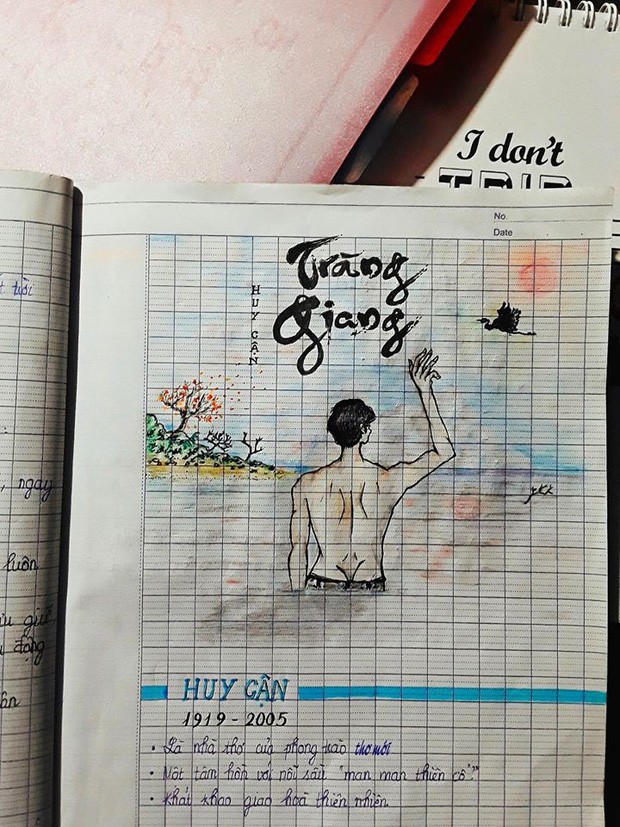 I don't
TRIP
No.
Date
Tràng
Giang
HUY CẬN
t tười
, ngày
luôn
ữu giữ
i động
ân
HUY CẬN
1919 - 2005
• Là nhà thơ của phong trào thơ mới
• Một tâm hồn với nỗi sầu "mang mang thiên cổ"
• Khát khao giao hoà thiên nhiên